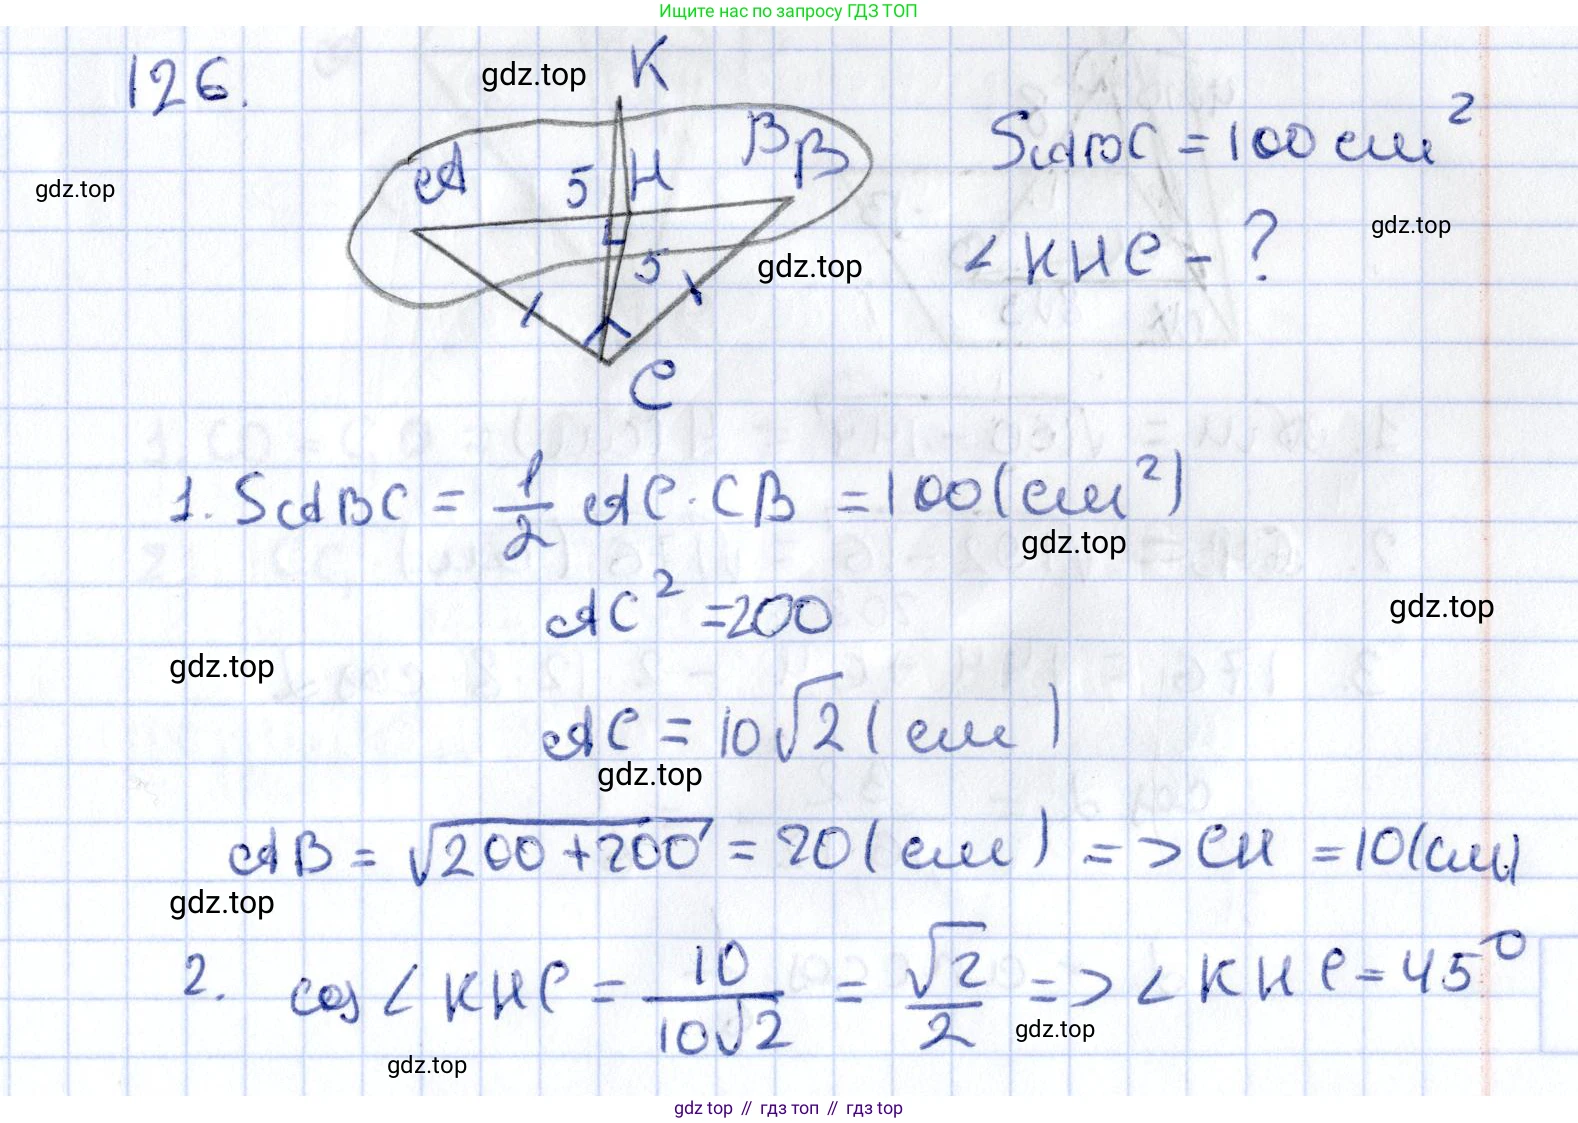 Ищите нас по запросу ГДЗ ТОП
126.
gdz.top
K
A
5
H
B
B
S ABC = 100 см²
gdz.top
gdz.top
∠ KHC - ?
5
gdz.top
C
1. S ABC = 1/2 AC · CB = 100 (см²)
gdz.top
AC² = 200
gdz.top
gdz.top
AC = 10√2 (см)
gdz.top
AB = √200+200 = 20 (см) => CH = 10 (см)
gdz.top
2. cos ∠ KHC = 10/10√2 = √2/2 => ∠ KHC = 45°
gdz.top
gdz.top
gdz top // гдз топ // гдз top